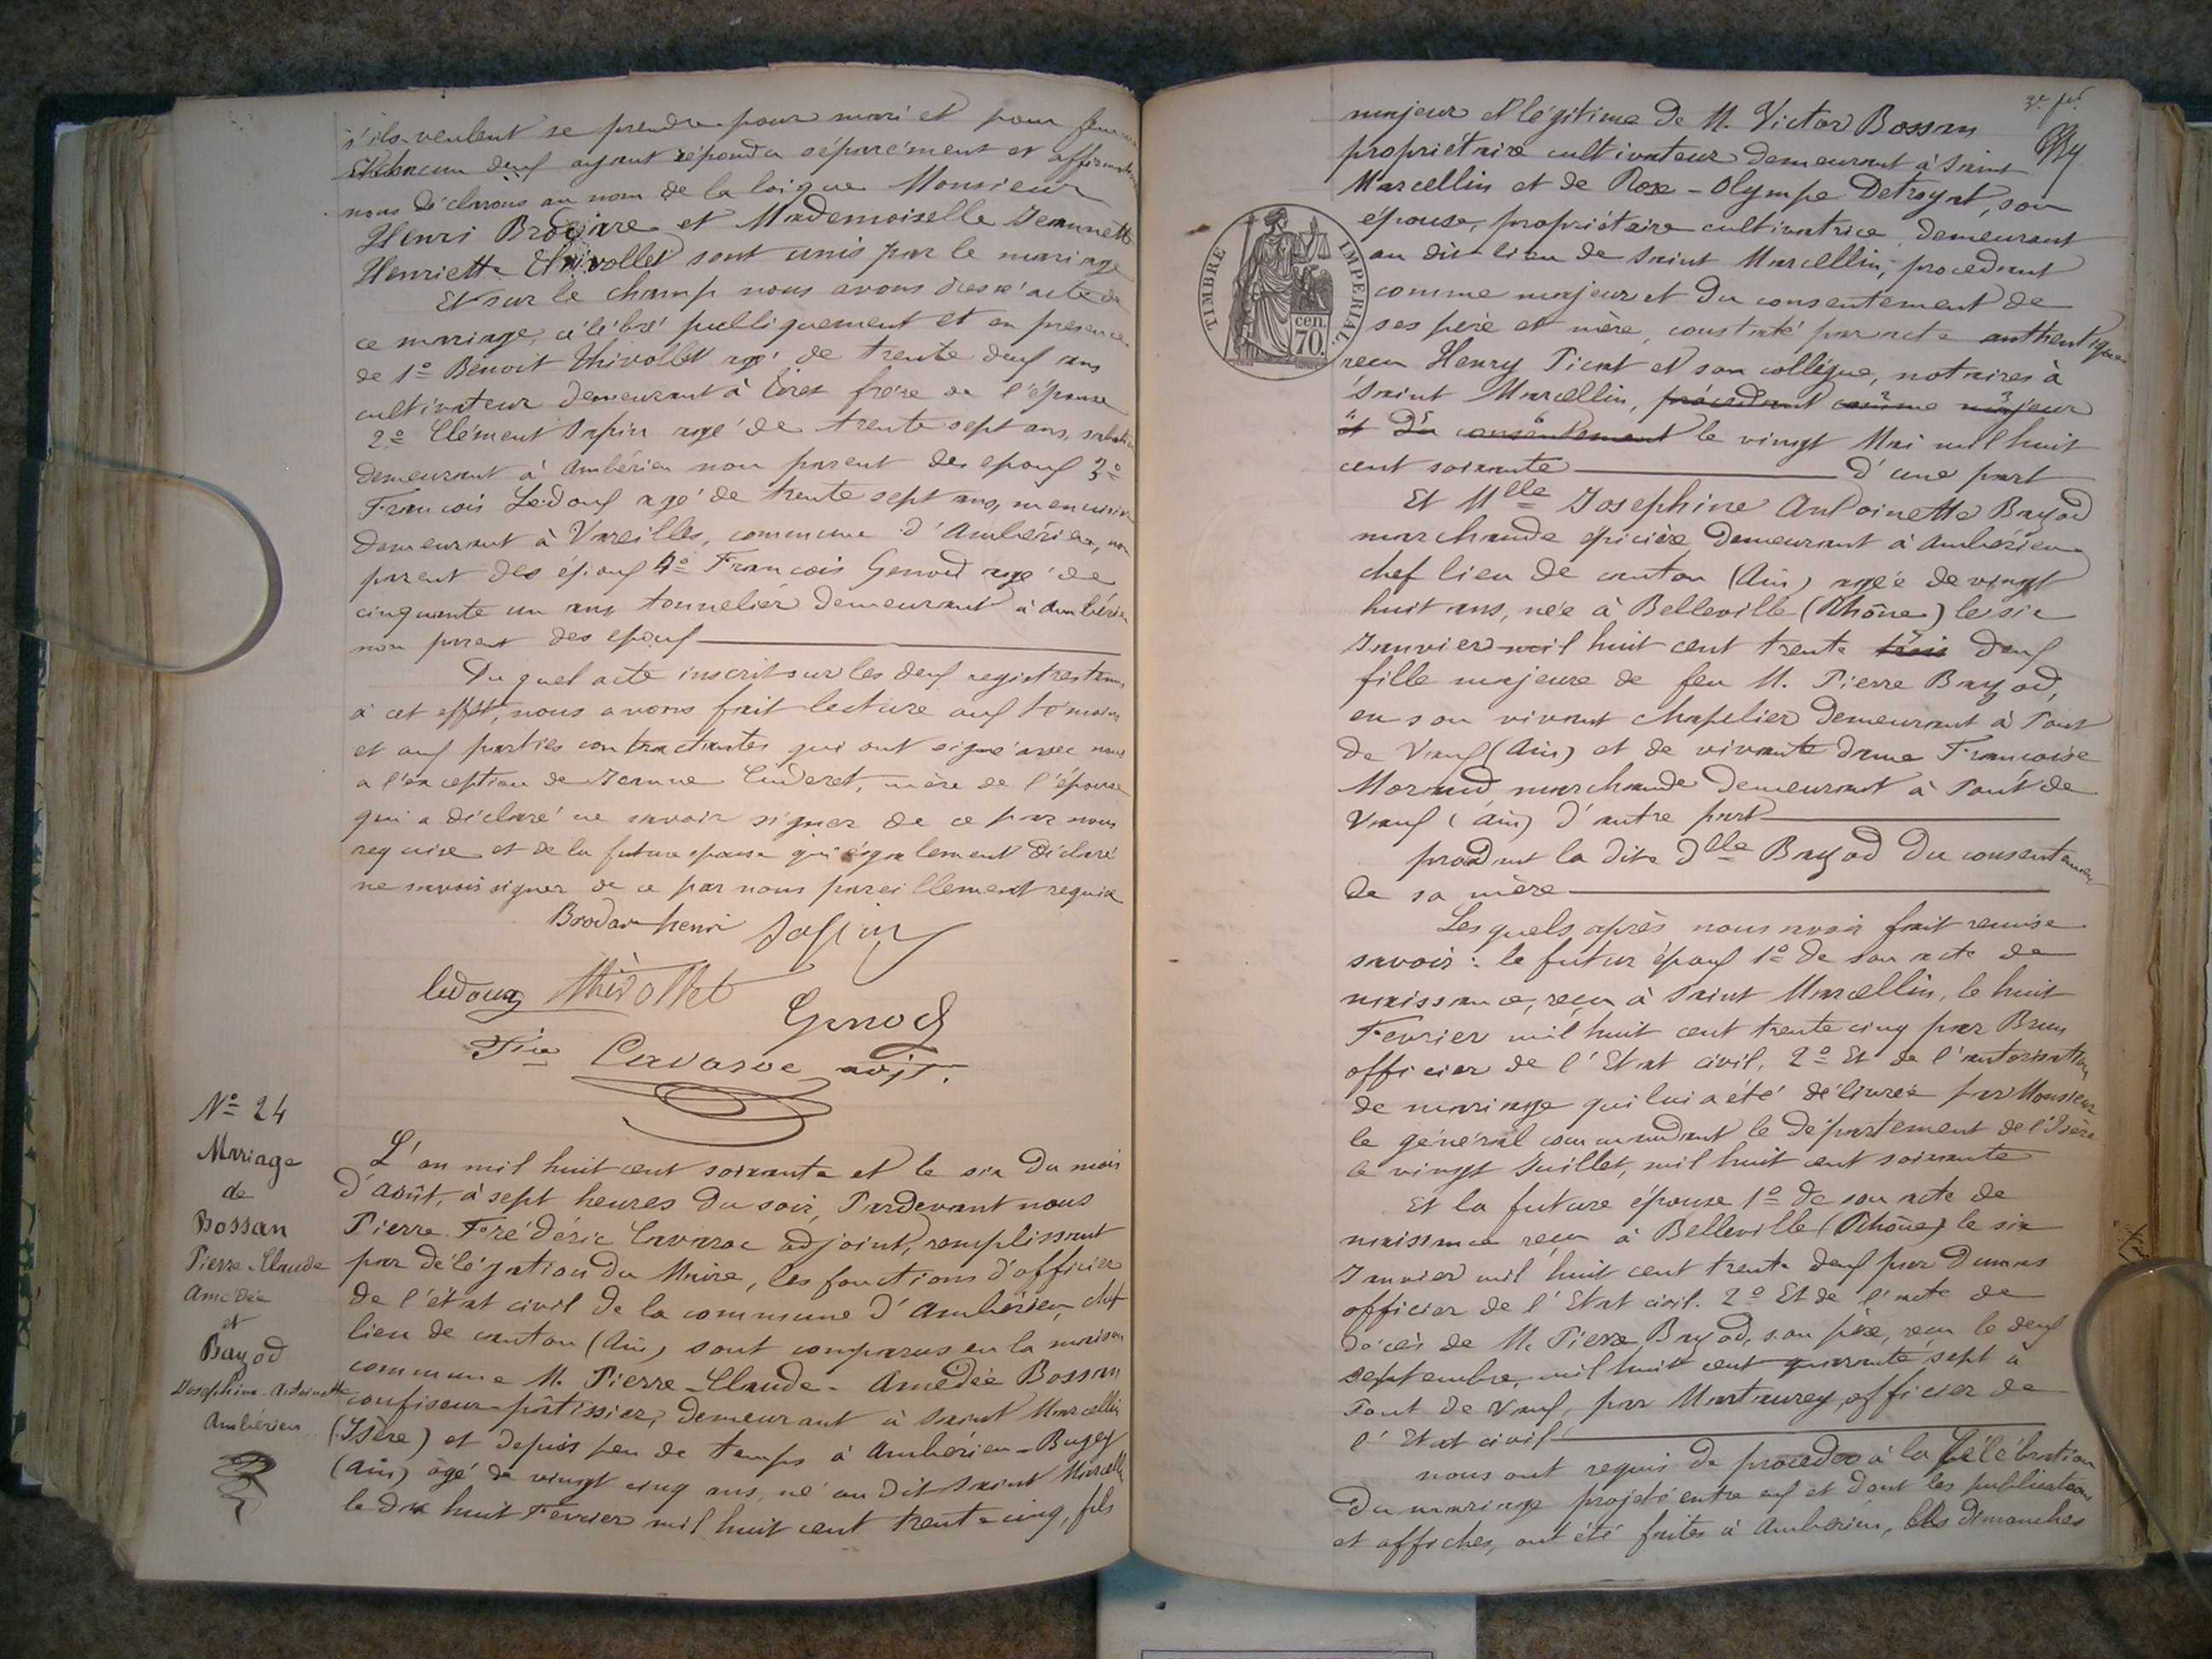 s'ils veulent se prendre pour mari et pour femme
Et chacun deux ayant répondu séparément et
nous déclarons au nom de la loi que Monsieur
Henri et Mademoiselle Jeannette
Henriette Thivollet sont unis par le mariage
Et sur le champ nous avons dressé acte de
ce mariage, célébré publiquement et en présence
de 1º Benoit Thivollet agé de trente deux ans
cultivateur demeurant à frère de l'épouse
2º Clément Sapin agé de trente sept ans,
demeurant à Ambérieu non parent des epoux 3º
François Ledoux agé de trente sept ans, menuisier
demeurant à Vareilles, commune d'Ambérieu, non
parent des époux 4º François Genod agé de
cinquante un ans tonnelier demeurant à Ambérieu
non parent des epoux
Du quel acte inscrit sur les deux registres tenus
à cet effet, nous avons fait lecture aux témoins
et aux parties contractantes qui ont signé avec nous
a l'exception de Jeanne Cuderet, mère de l'épouse
qui a déclaré ne savoir signer de ce par nous
requise et de la future epouse qui également déclaré
ne savoir signer de ce par nous pareillement requise
henri Sapin
ledoux thivollet
Genod
Fric Cavaroc adjt.
Nº 24
Mariage
de
Bossan
Pierre-Claude
Amédée
et
Bayod
Joséphine Antoinette
Ambérieu
L'an mil huit cent soixante et le six du mois
d'Août, à sept heures du soir, Pardevant nous
Pierre Frédéric Cavaroc adjoint, remplissant
par délégation du Maire, les fonctions d'officier
de l'état civil de la commune d'Ambérieu, chef
lieu de canton (Ain) sont comparus en la maison
commune M. Pierre-Claude-Amédée Bossan
confiseur-pâtissier, demeurant à Saint Marcellin
(Isère) et depuis peu de temps à Ambérieu-Bugey
(Ain) âgé de vingt cinq ans, né au dit Saint Marcellin
le dix huit Fevrier mil huit cent trente-cinq, fils
majeur et légitime de M. Victor Bossan
propriétaire cultivateur demeurant à Saint
Marcellin et de Rose-Olympe Detroyat, son
épouse, propriétaire cultivatrice, demeurant
au dit lieu de Saint Marcellin, procédant
comme majeur et du consentement de
ses père et mère, constaté par acte authentique
recu Henry Picat et son collègue, notaires à
Saint Marcellin, procédant comme majeur
et du consentement le vingt Mai mil huit
cent soixante d'une part
Et Mlle Josephine Antoinette Bayod
marchande épicière, demeurant à Ambérieu
chef lieu de canton (Ain) agée de vingt
huit ans, née à Belleville (Rhône) le six
Janvier mil huit cent trente trois deux
fille majeure de feu M. Pierre Bayod,
en son vivant chapelier demeurant à Pont
de Vaux (Ain) et de vivante dame Françoise
Morand, marchande demeurant à Pont de
Vaux (Ain) d'autre part
la dite Dlle Bayod du consentement
de sa mère
Les quels après nous avoir fait remise
savoir: le futur époux 1º de son acte de
naissance, reçu à Saint Marcellin, le huit
Fevrier mil huit cent trente cinq par Brun
officier de l'Etat civil, 2º Et de l'autorisation
de mariage qui lui a été délivrée par Monsieur
le général commandant le département de l'Isère
le vingt Juillet, mil huit cent soixante
Et la future épouse 1º de son acte de
naissance reçu à Belleville (Rhône) le six
Janvier mil huit cent trente deux par
officier de l'Etat civil. 2º Et de l'acte de
décès de M. Pierre Bayod, son père, reçu le deux
septembre, mil huit cent quarante sept à
Pont de Vaux, par officier de
l'Etat civil
nous ont requis de procéder à la célébration
du mariage projeté entre eux et dont les publications
et affiches, ont été faites à Ambérieu, les dimanches
TIMBRE IMPERIAL
cen.
70.